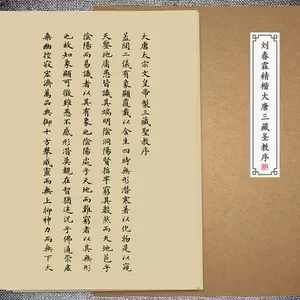 刘春霖精楷大唐三藏圣教序
大唐太宗文皇帝製三藏聖教序
蓋聞二儀有象顯覆載以含生四時無形潛寒暑以化物是以窺
天鑒地庸愚皆識其端明陰洞陽賢哲罕窮其數然而天地苞乎
陰陽而易識者以其有象也陰陽處乎天地而難窮者以其無形
也故知象顯可徵雖愚不惑形潛莫覩在智猶迷況乎佛道崇虛
乘幽控寂弘濟萬品典御十方舉威靈而無上抑神力而無下大